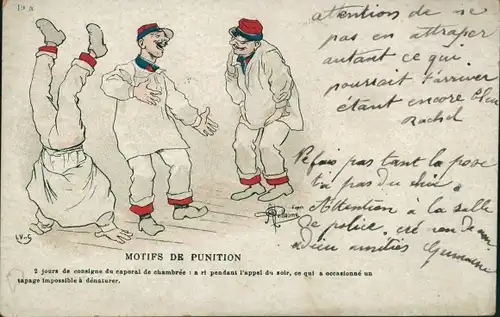 attention de ne
pas en attraper
autant ce qui
pourrait t'arriver
étant encore bleu
Rachel
Ne fais pas tant la pose
t'a pas du chic
Attention à la salle
de police,
adieu amitiés Germaine
L.V.&C
MOTIFS DE PUNITION
2 jours de consigne du caporal de chambrée : a ri pendant l'appel du soir, ce qui a occasionné un
tapage impossible à dénaturer.